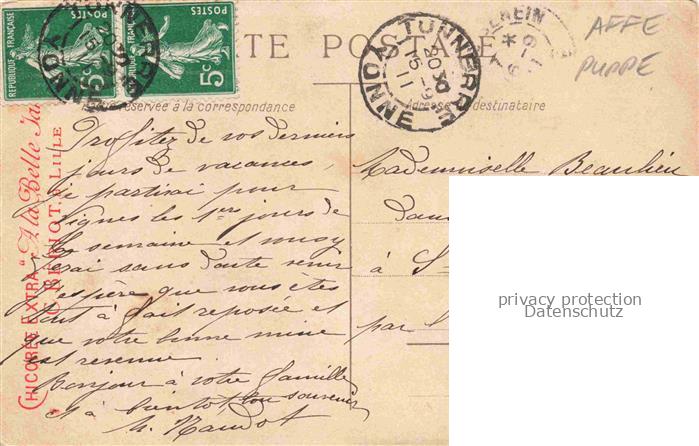 RÉPUBLIQUE FRANÇAISE
5c
RÉPUBLIQUE FRANÇAISE
5c
POSTES
TONNERRE
YONNE
TONNERRE
YONNE
15-9
11
AFFE
PUPPE
CARTE POSTALE
réservée à la correspondance
Adresse destinataire
CHICORÉE EXTRA "A la Belle Ja
C. BÉRIOT, LILLE
Profitez de vos derniers
jours de vacances,
je partirai pour
Vignes les 1ers jours de
la semaine et m'y
ferai sans doute venir
J'espère que vous êtes
tout à fait reposée et
que votre bonne mine
est revenue.
Bonjour à votre famille
et à bientôt bon souvenir
Mademoiselle Beaulieu
à S
par
privacy protection
Datenschutz